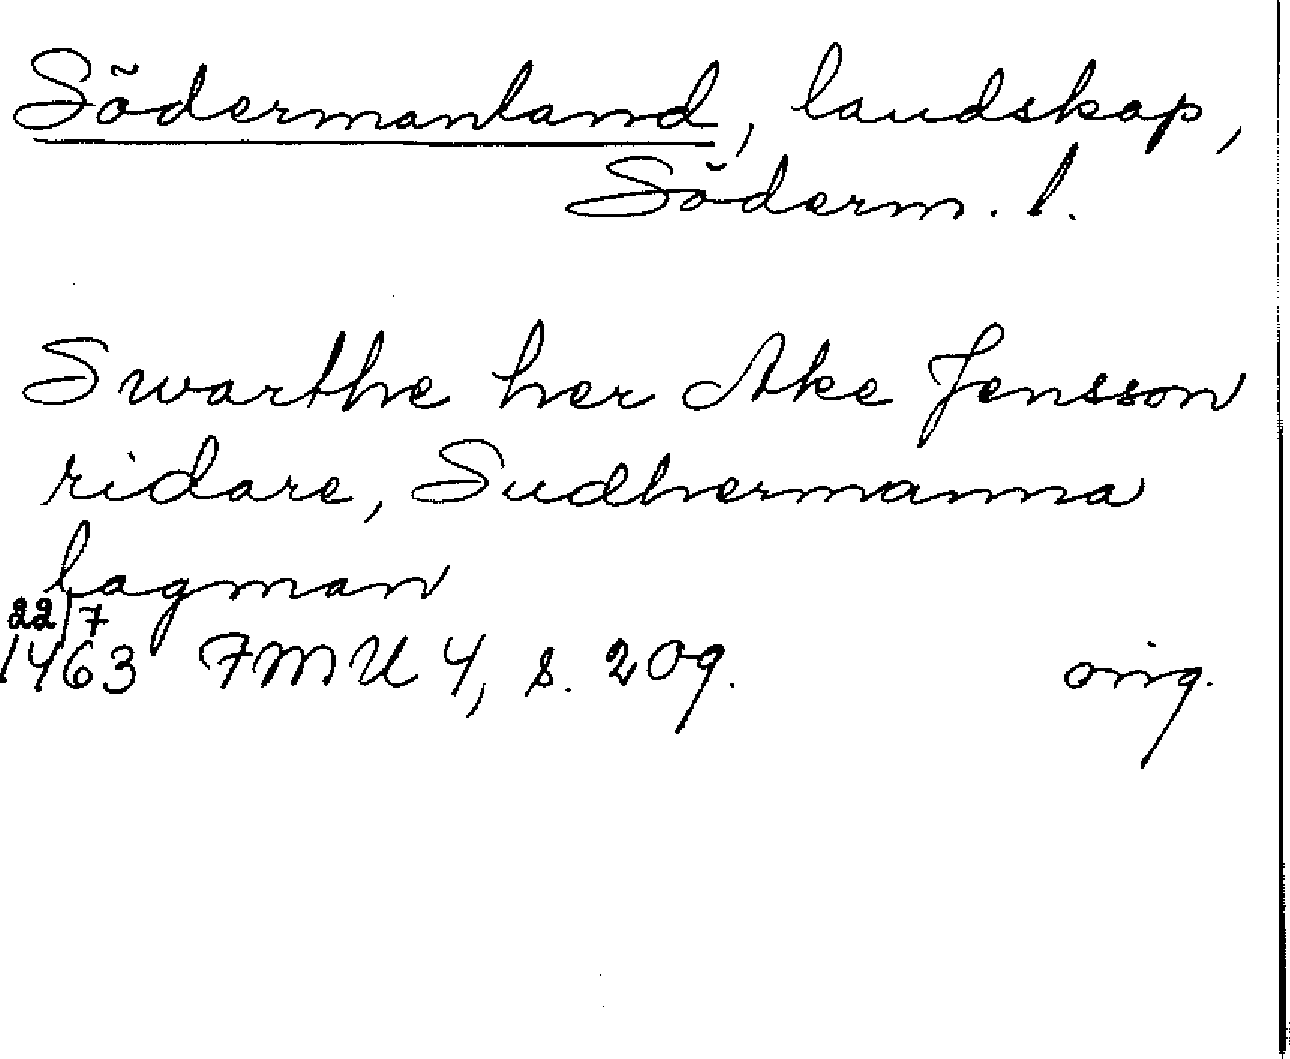 Södermanland, landskap,
Söderm. l.
Swarthe her Ake Jensson
ridare, Sudhermanna
lagman
22/7
1463 FMU 4, s. 209. orig.